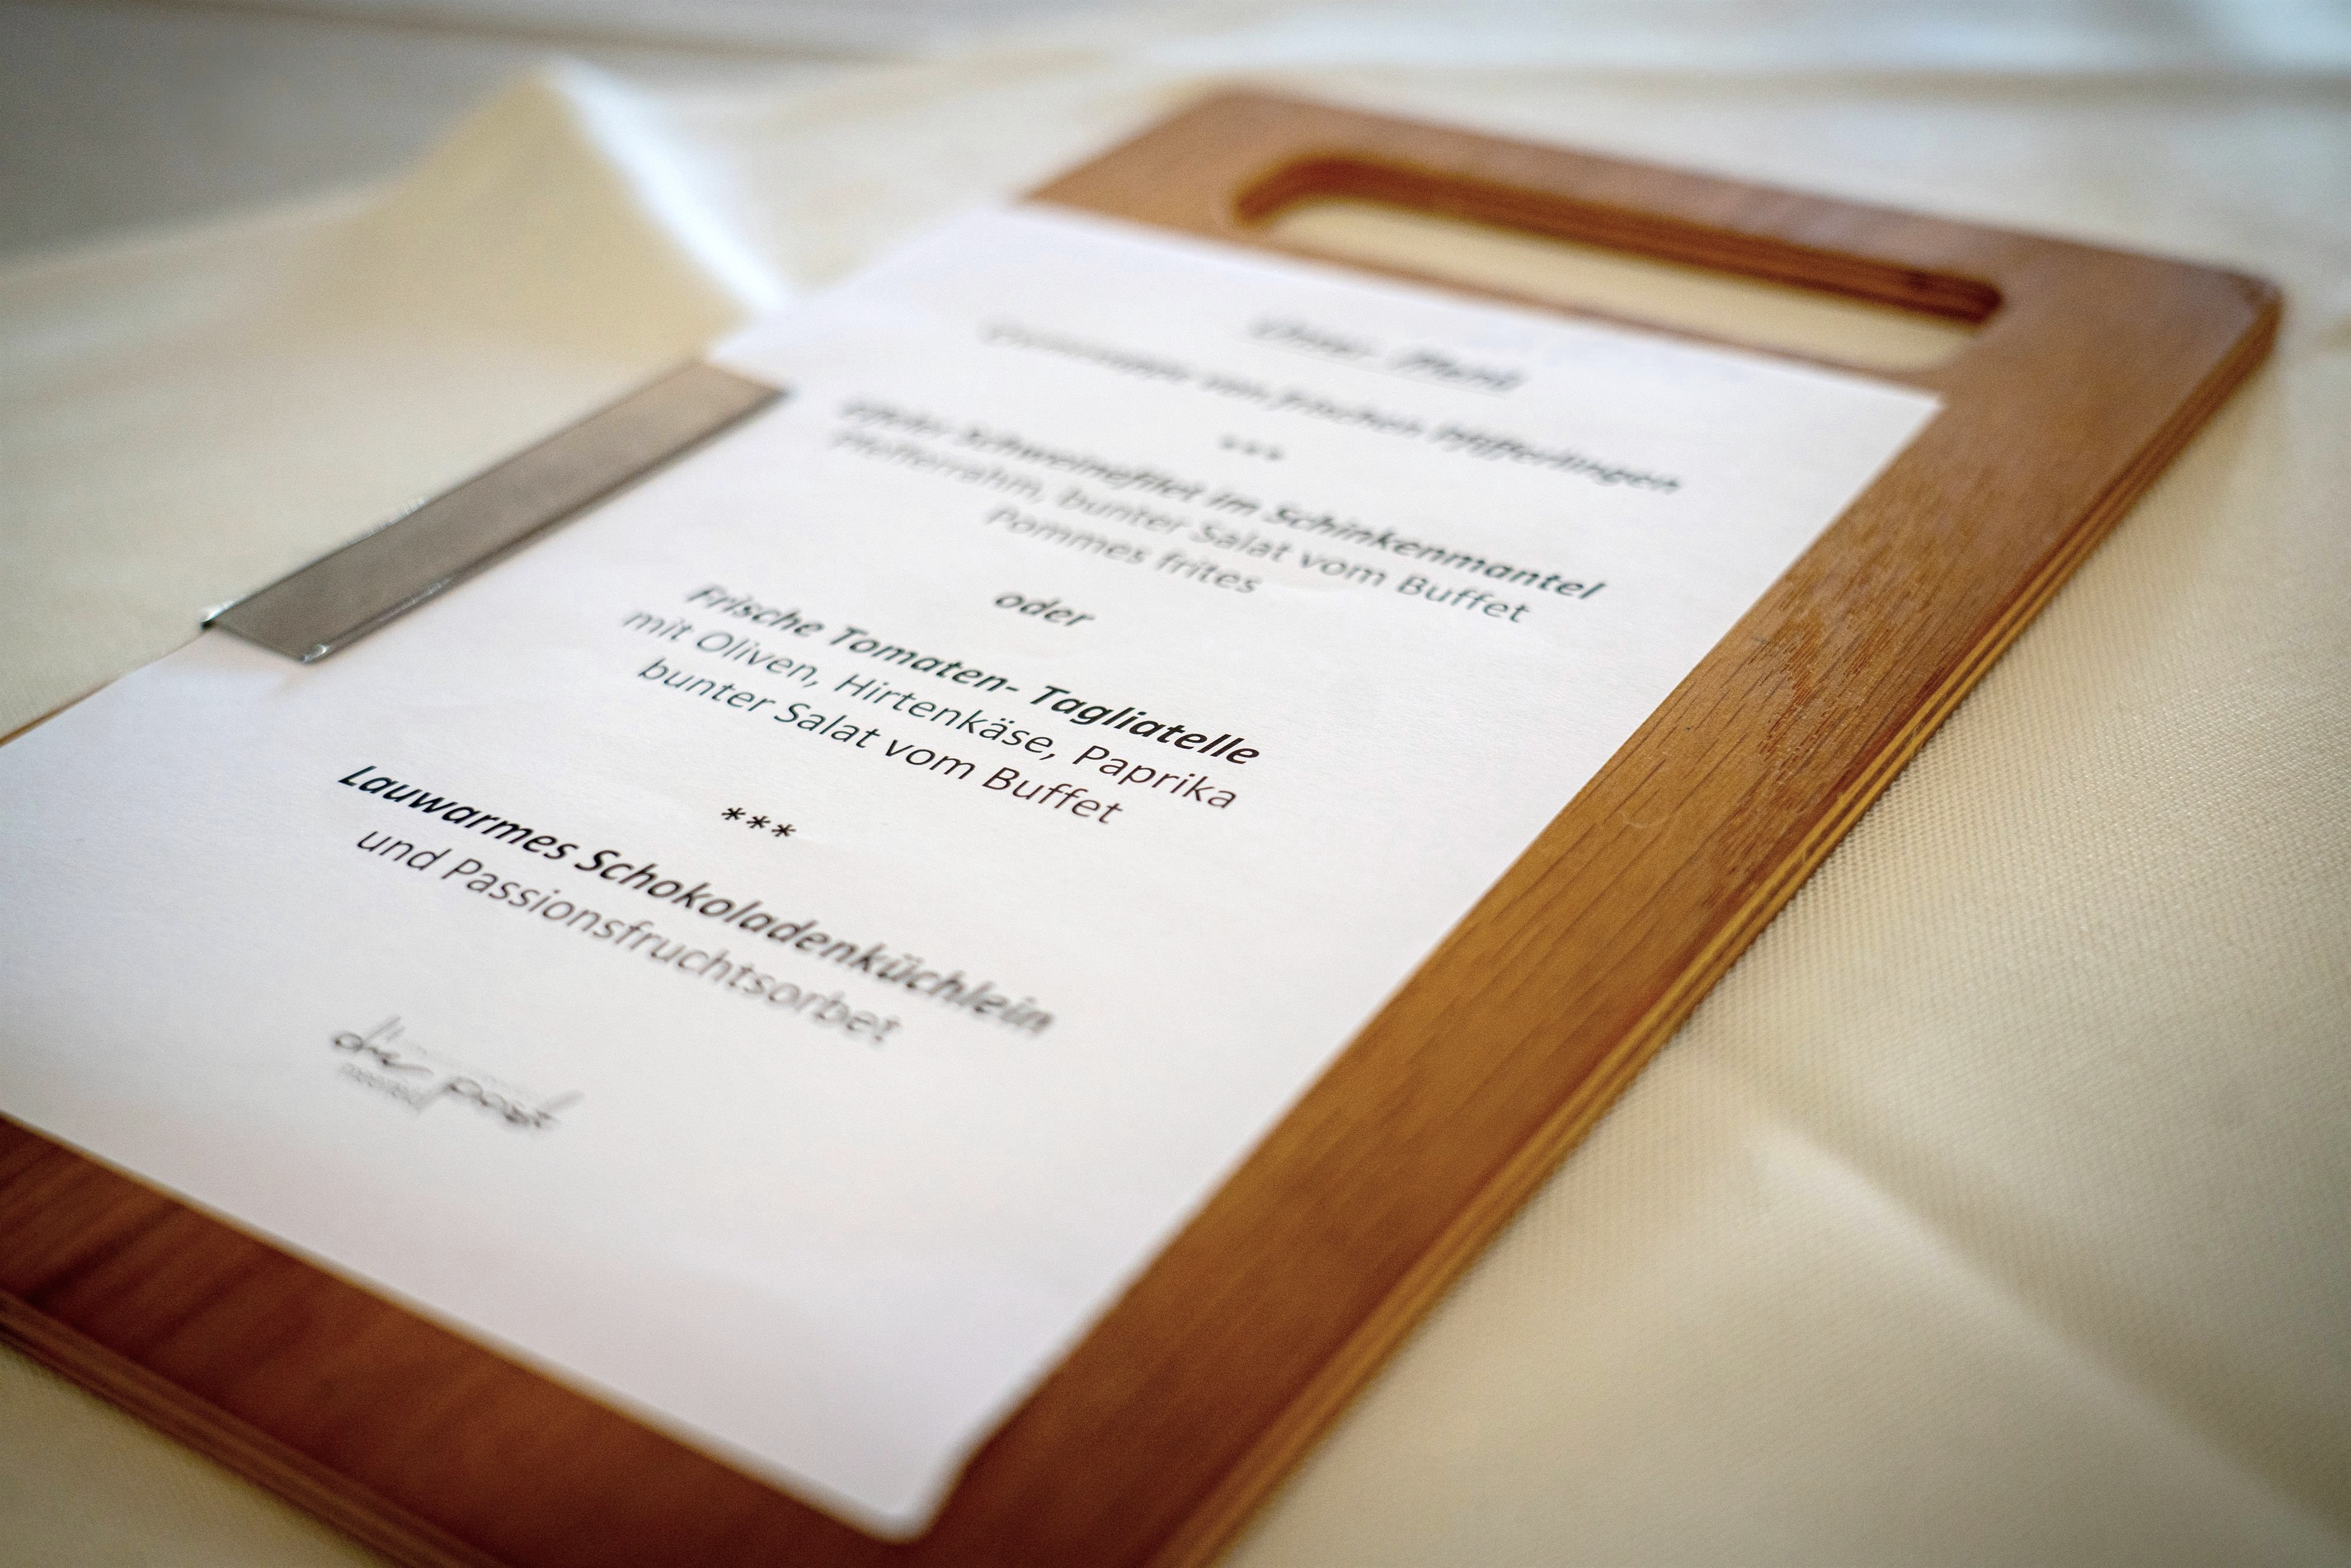 Menü
vom frischen Pfifferlingen
***
Schweinefilet im Schinkenmantel
Pfefferrahm, bunter Salat vom Buffet
Pommes frites
oder
Frische Tomaten- Tagliatelle
mit Oliven, Hirtenkäse, Paprika
bunter Salat vom Buffet
***
Lauwarmes Schokoladenküchlein
und Passionsfruchtsorbet
die post